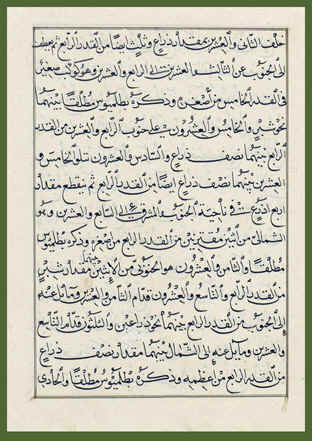 خلف الثانى والعشرين بمقدار ذراع وثلث ايضًا من القدر الرابع ثم يعطف
الى الجنوب عن الثالث والعشرين الى الرابع والعشرين وهو كوكب صغير
فى القدر الخامس من أضعفه وذكره بطلميوس مطلقًا بينهما
نحو شبرين والخامس والعشرون على جنوب الرابع والعشرين من القدر
الرابع بينهما نصف ذراع والسادس والعشرون تتلو الخامس و
العشرين بينهما نصف ذراع ايضًا من القدر الرابع ثم ينقطع مقدار
اربع اذرع فى ناحية الجنوب المشرق الى السابع والعشرين وهو
الشمالى من اثنين مقترنين من القدر الرابع من أصغره وذكره بطلميوس
مطلقًا والثامن والعشرون هو الجنوبى من الاثنين بينهما مقدار شبر
من القدر الرابع والتاسع والعشرون قدام الثامن والعشرين ومايل عنه
الى الجنوب من القدر الرابع بينهما نحو ذراعين والثلثون قدام التاسع
والعشرين ومايل عنه الى الشمال بينهما مقدار نصف ذراع
من القدر الرابع من اعظمه وذكره بطلميوس مطلقًا والحادى